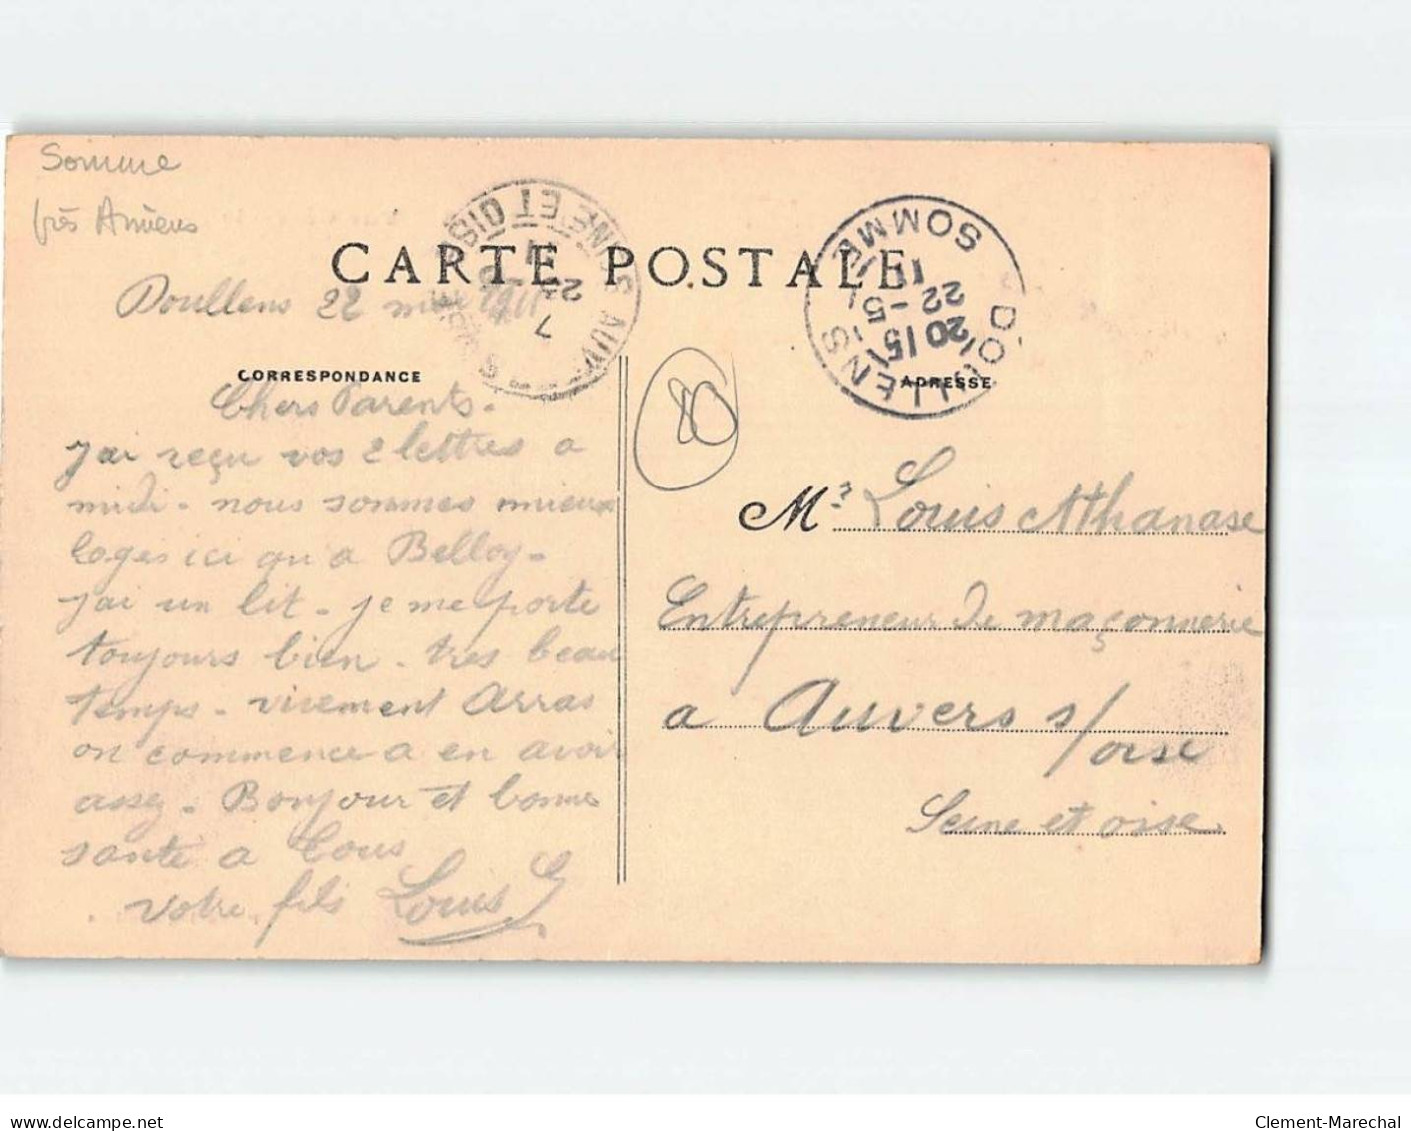 Somme
près Amiens
CARTE POSTALE
SEINE ET OISE
AUVERS
DOULLENS
SOMME
20/15
22-5
11
Doullens 22 mai 1911
CORRESPONDANCE
ADRESSE
80
Chers Parents.
j'ai reçu vos 2 lettres a
midi. nous sommes mieux
loges ici qu'a Belloy.
j'ai un lit. je me porte
toujours bien. tres beau
temps. vivement Arras
on commence a en avoir
assez. Bonjour et bonne
santé a tous
votre fils Louis
Mr Louis Athanase
Entrepreneur de maçonnerie
a Auvers s/
oise
Seine et oise
delcampe.net
Clement-Marechal